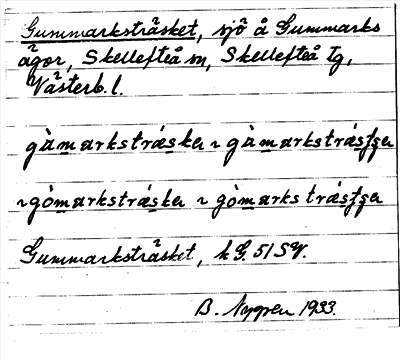 Gummarksträsket, sjö å Gummarks
ägor, Skellefteå sn, Skellefteå tg,
Västerb. l.
gàmarkstræska ~ gàmarkstræsʃʂa
~ gòmarkstræska ~ gòmarkstræsʃʂa
Gummarksträsket, k G. 51 SV.
B. Nygren 1933.